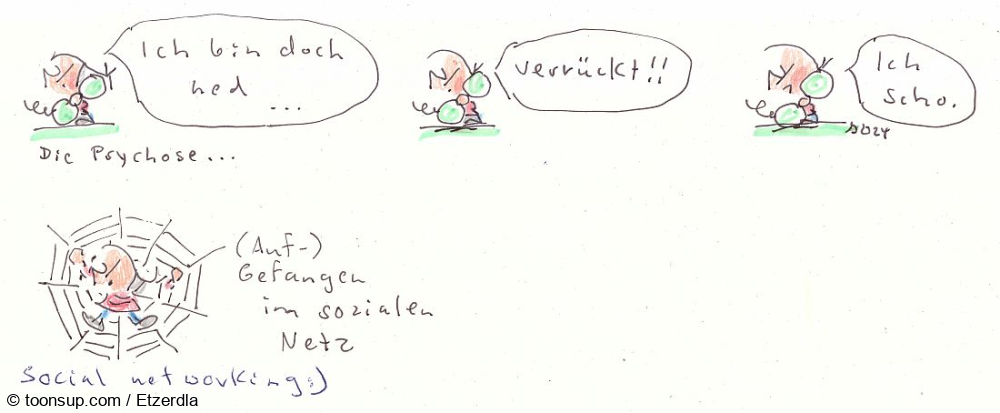 Ich bin doch
ned ...
verrückt!!
Ich
scho.
Die Psychose...
(Auf-)
Gefangen
im sozialen
Netz
Social networking:)
© toonsup.com / Etzerdla